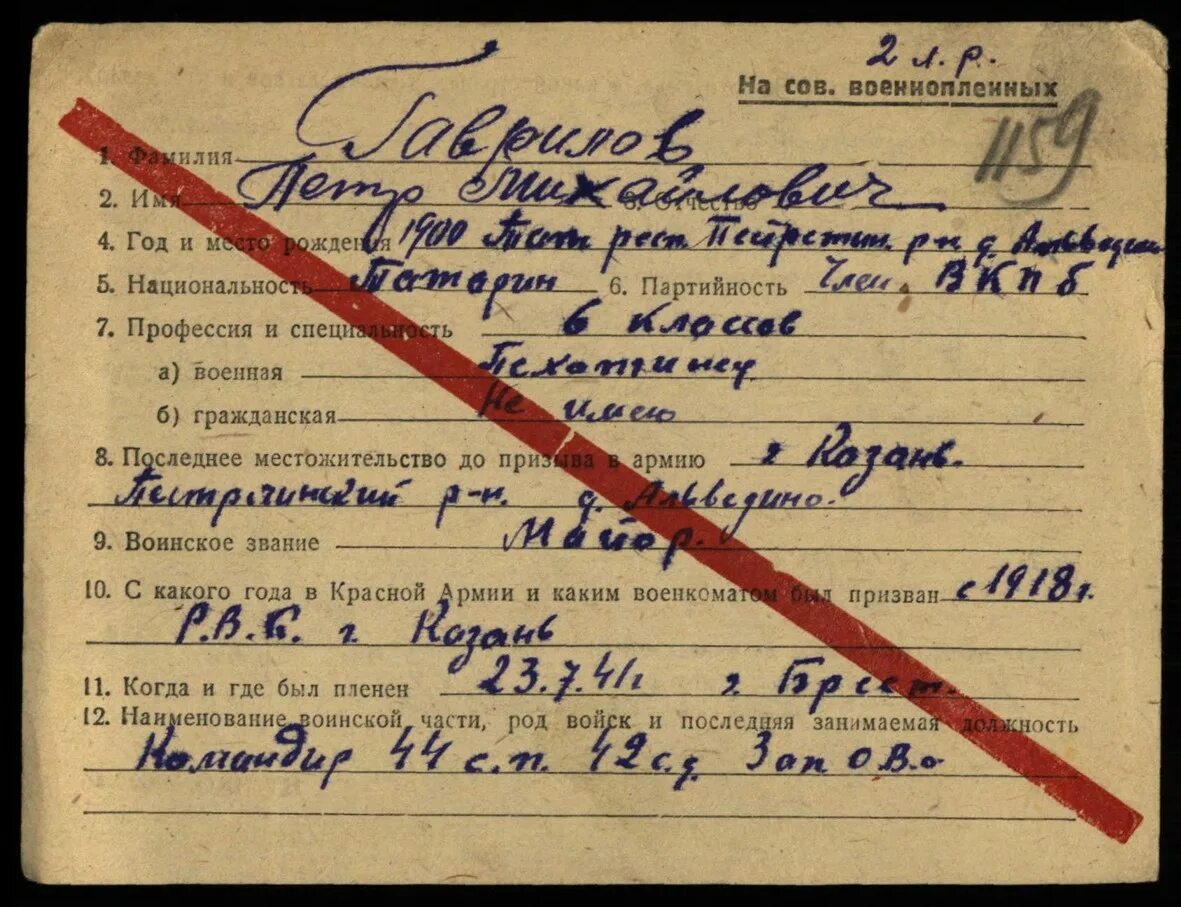 2 л.р.
На сов. военнопленных
1159
1. Фамилия Гаврилов
2. Имя Петр Михайлович 3. Отчество
4. Год и место рождения 1900 Тат. респ. р-н д.
5. Национальность Татарин 6. Партийность Член ВКПб
7. Профессия и специальность 6 классов
а) военная Пехотинец
б) гражданская Не имею
8. Последнее местожительство до призыва в армию г Казань.
Пестречинский р-н. д. Альведино.
9. Воинское звание Майор.
10. С какого года в Красной Армии и каким военкоматом был призван с 1918 г.
Р.В.К. г. Казань
11. Когда и где был пленен 23.7.41 г г Брест.
12. Наименование воинской части, род войск и последняя занимаемая должность
Командир 44 с.п. 42 с.д. Зап О.В.о